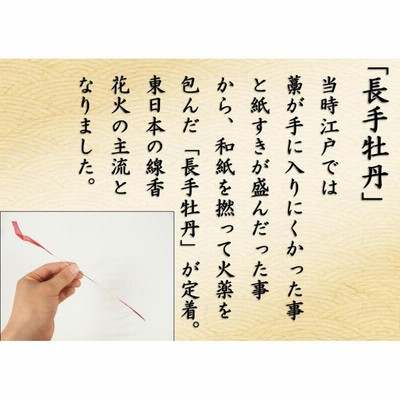 「長手牡丹」
当時江戸では
藁が手に入りにくかった事
と紙すきが盛んだった事
から、和紙を撚って火薬を
包んだ「長手牡丹」が定着。
東日本の線香
花火の主流と
なりました。